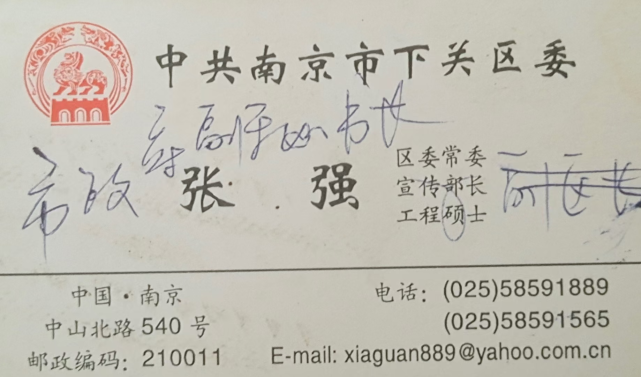 中共南京市下关区委
市政府副秘书长
张 强
区委常委
宣传部长
工程硕士
副区长
中国·南京
中山北路 540 号
邮政编码：210011
电话：(025)58591889
(025)58591565
E-mail: xiaguan889@yahoo.com.cn